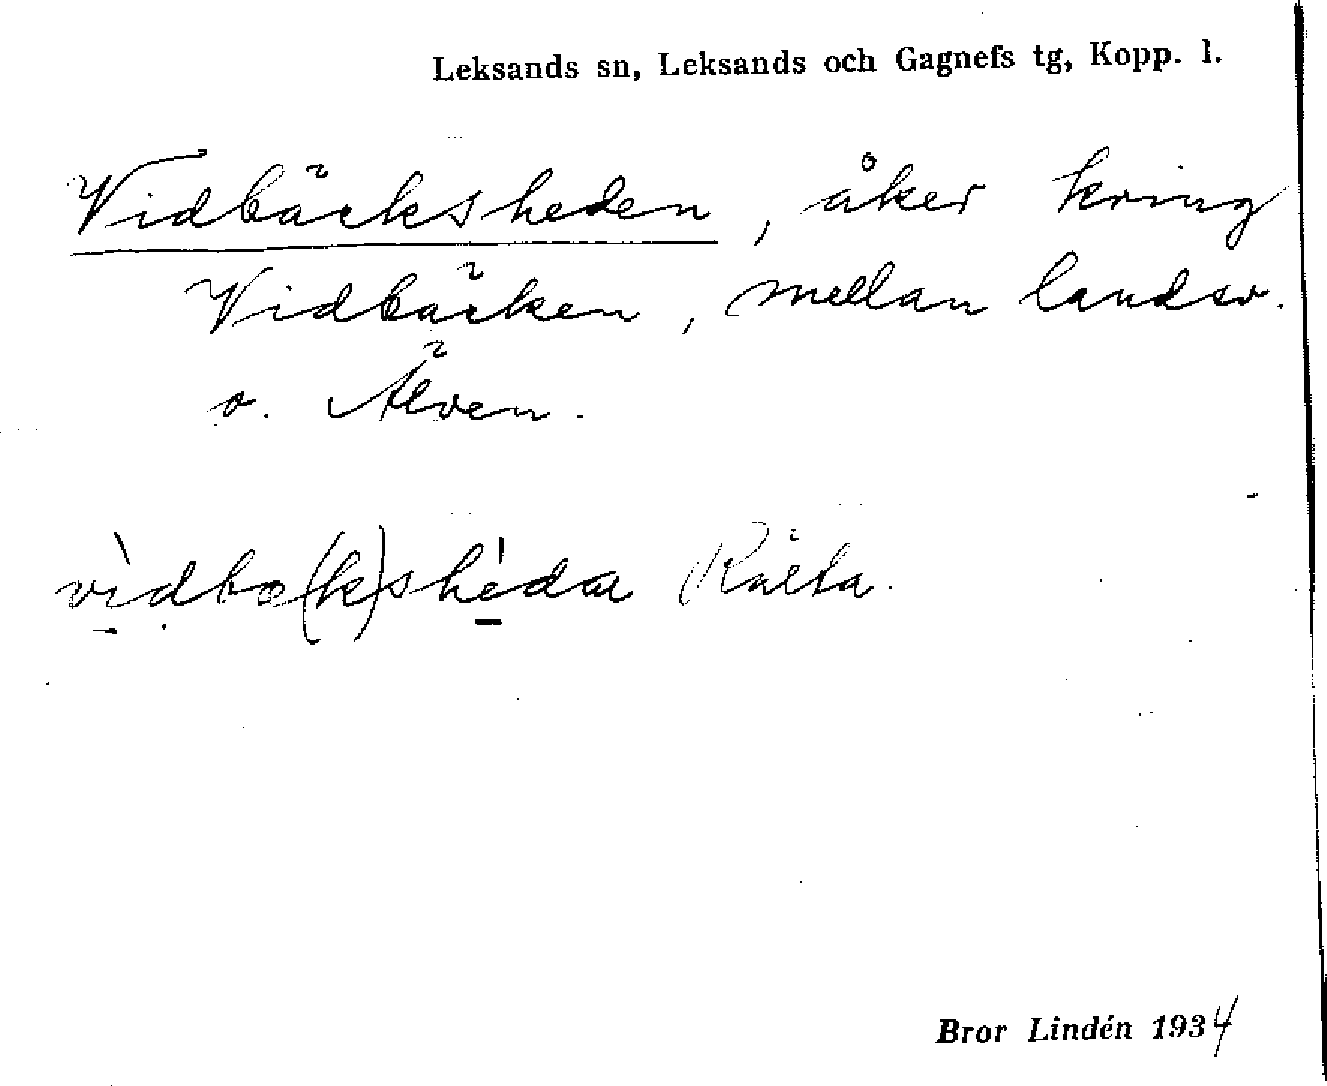 Leksands sn, Leksands och Gagnefs tg, Kopp. l.
Vidbäcksheden, åker kring
Vidbäcken, mellan landsv.
o. Älven.
vìdbo(k)shèda
Bror Lindén 1934